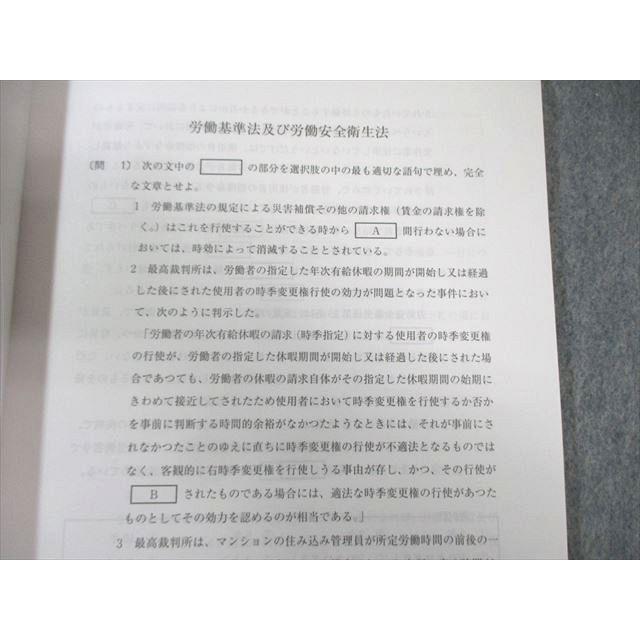 労働基準法及び労働安全衛生法
〔問 1〕 次の文中の の部分を選択肢の中の最も適切な語句で埋め、完全
な文章とせよ。
1 労働基準法の規定による災害補償その他の請求権(賃金の請求権を除
く。)はこれを行使することができる時から A 間行わない場合に
おいては、時効によって消滅することとされている。
2 最高裁判所は、労働者の指定した年次有給休暇の期間が開始し又は経過
した後にされた使用者の時季変更権行使の効力が問題となった事件におい
て、次のように判示した。
「労働者の年次有給休暇の請求(時季指定)に対する使用者の時季変更権
の行使が、労働者の指定した休暇期間が開始し又は経過した後にされた場
合であつても、労働者の休暇の請求自体がその指定した休暇期間の始期に
きわめて接近してされたため使用者において時季変更権を行使するか否か
を事前に判断する時間的余裕がなかつたようなときには、それが事前にさ
れなかつたことのゆえに直ちに時季変更権の行使が不適法となるものでは
なく、客観的に右時季変更権を行使しうる事由が存し、かつ、その行使が
B されたものである場合には、適法な時季変更権の行使があつた
ものとしてその効力を認めるのが相当である。」
3 最高裁判所は、マンションの住み込み管理員が所定労働時間の前後の一